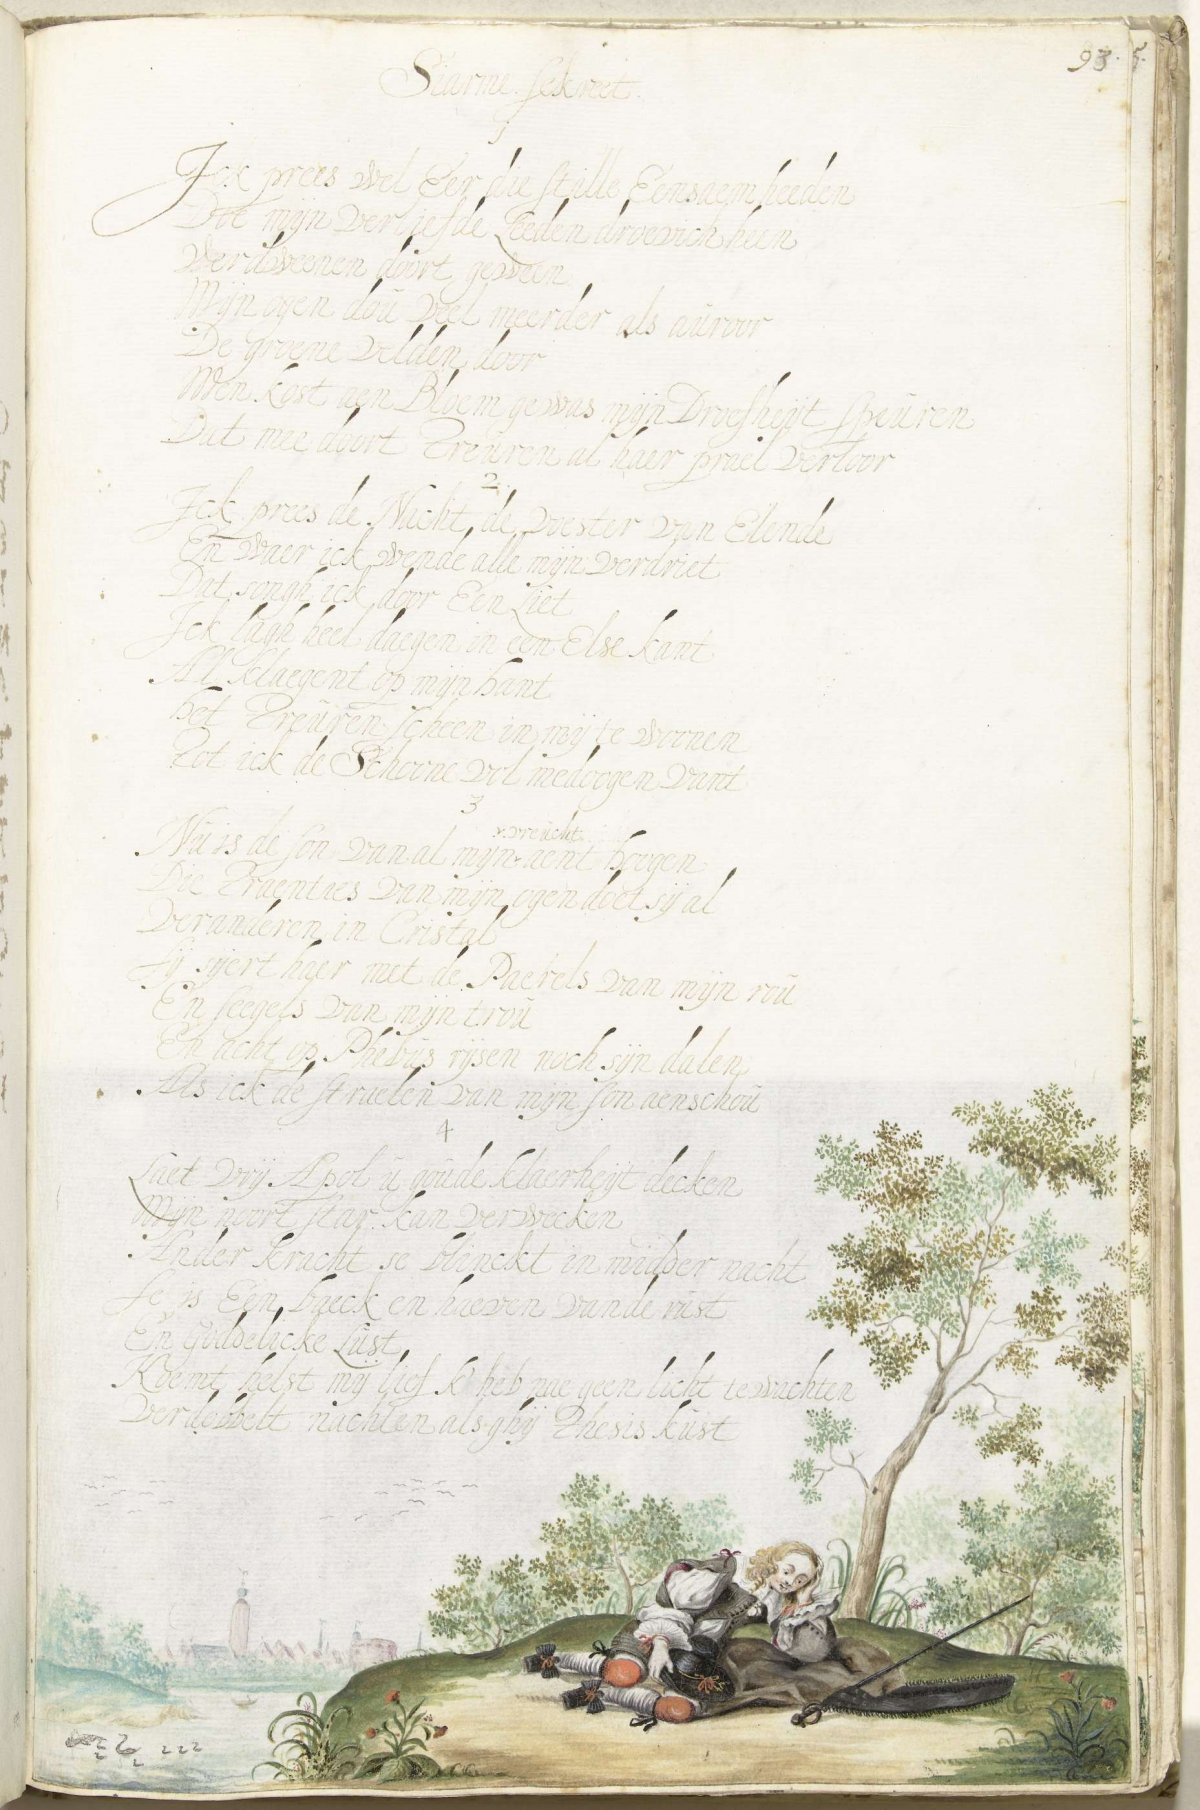 93.
Siarme sekreet.
1
Ick prees wel Eer die stille Eensaemheeden
Die mijn verliefde Leeden droevich heen
Verdweenen doort geween
Mijn ogen dou veel meerder als auroor
De groene velden door
Men kost aen Bloem gewas mijn Droefheijt speuren
Dat mee doort Treuren al haer prael verloor
2
Ick prees de Nacht, de voester van Elende
En waer ick wende alle mijn verdriet
Dat songh ick door Een Liet
Ick lagh heel daegen in een Else kant
Al klaegent op mijn hant
het Treuren scheen in mij te woonen
Tot ick de Schoone vol medoogen vant
3
vreucht
Nu is de son van al mijn aent hoogen
Die Traenties van mijn ogen doet sij al
Veranderen in Cristal
Sij sijert haer met de Paerels van mijn rou
En seegels van mijn trou
En acht op Phebus rijsen noch sijn dalen
Als ick de straelen van mijn son aenschou
4
Laet vrij Apol u goude klaerheijt decken
Mijn noort star kan verwecken
Ander kracht se blinckt in midder nacht
Se is Een baeck en haeven vande rust
En goddelicke Lust
Koemt helst mij lief k heb nae geen licht te wachten
Verdobbelt nachten als ghij Thesis kust